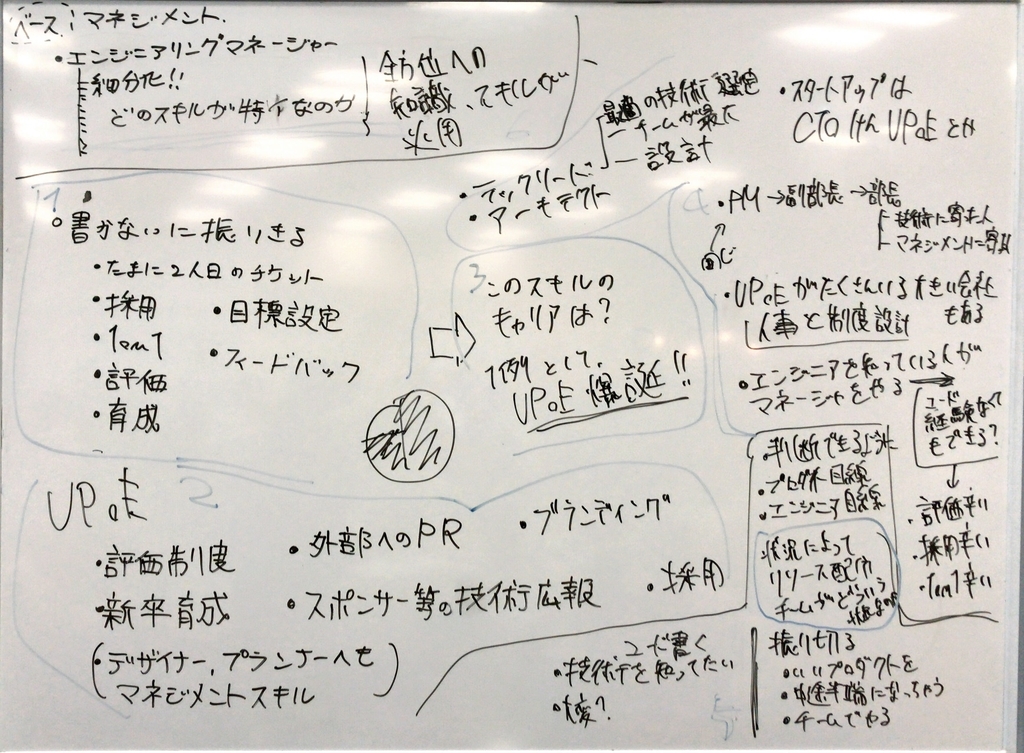 ベース マネジメント
・エンジニアリングマネージャー
細分化!!
どのスキルが特
全方位への
知識、スキルが
必要
・テックリード
・アーキテクト
最適の技術選定
チームが最大
設計
・スタートアップは
CTO けん VPoE とか
1
・書かないに振りきる
・たまに2人日のチケット
・採用
・1on1
・評価
・育成
・目標設定
・フィードバック
3
このスキルの
キャリアは?
1例として、
VPoE 爆誕!!
4
・PM→副部長→部長
技術に寄せた人
マネジメントに寄
同じ
・VPoEがたくさんいる大きい会社
もある
人事と制度設計
・エンジニアを知っている人が
マネージャをやる→
コード
経験なくて
もできる?
・評価辛い
・採用辛い
・1on1辛い
・判断できる
・プロダクト目線
・エンジニア目線
状況によって
リソース配分
チームがどういう
2
VPoE
・評価制度
・新卒育成
(・デザイナー、プランナーへも
マネジメントスキル)
・外部へのPR
・スポンサー等の技術広報
・ブランディング
・採用
コード書く
・技術を知ってたい
・大変?
5
振り切る
・いいプロダクトを
・中途半端になっちゃう
・チームでやる